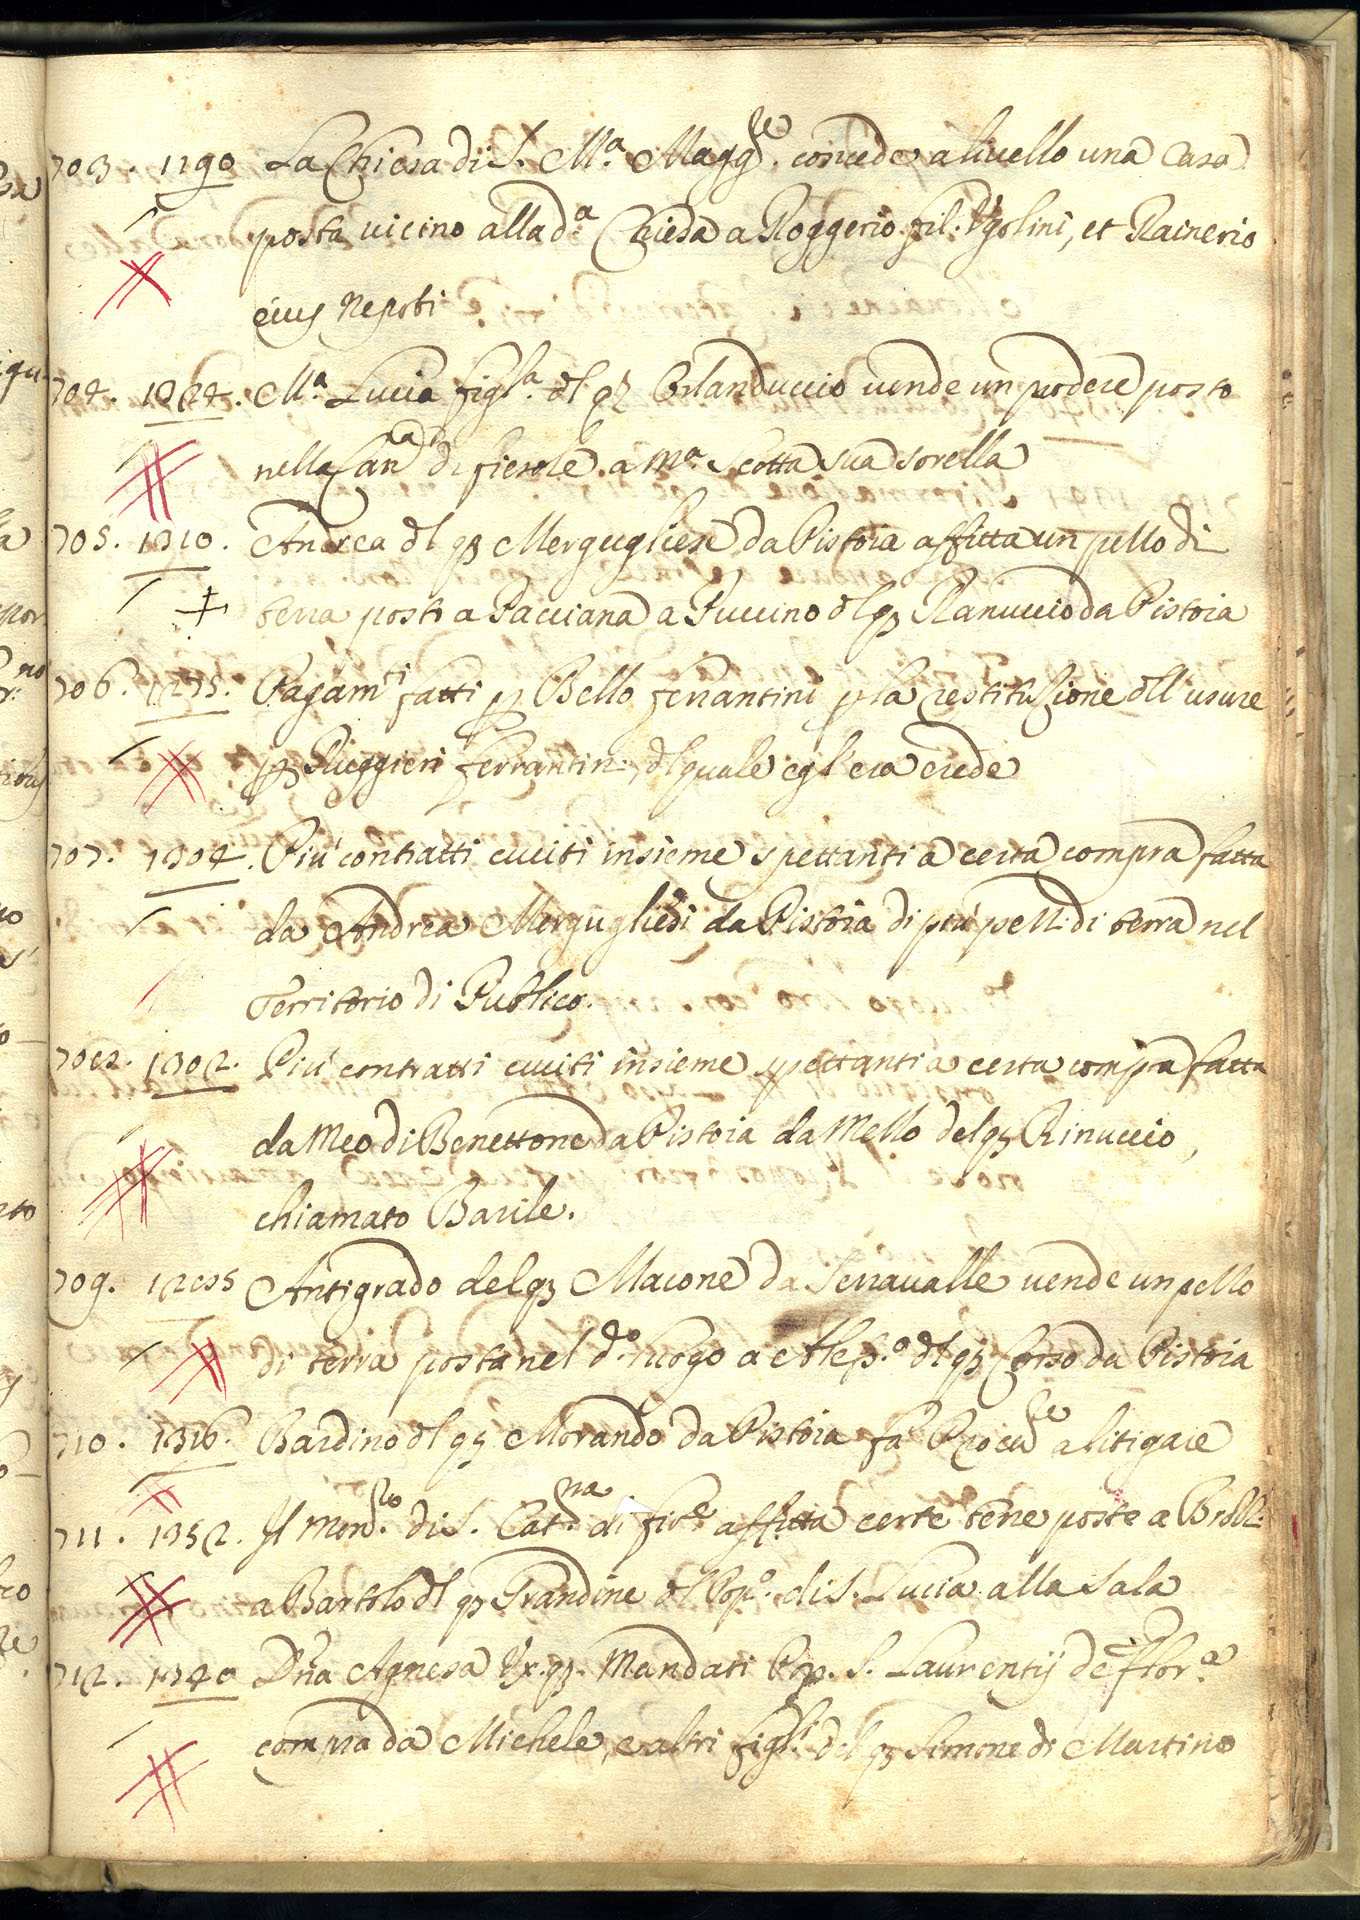 703. 1190 La Chiesa di S. M.a Magg.re concede a livello una Casa
posta vicino alla d.a Chiesa a Roggerio fil. Vgolini, et Rainerio
eius Nepoti
704. 1324. M.a Lucia figl.a dl q3 Orlanduccio vende un podere posto
nella di fiesole a M.a Scotta sua sorella
705. 1310. Andrea dl q3 Mergugliese da Pistoia affitta un pezzo di
terra posto a Pacciana a Puccino dl q3 Ranuccio da Pistoia
706. 1275. Pagam.ti fatti p Bello ferrantini p la restituzione dll' usure
p Ruggieri ferrantin. dl quale egl' era erede
707. 1304. Piu contratti cuciti insieme spettanti a certa compra fatta
da Andrea Mergugliesi da Pistoia di piu pezzi di terra nel
Territorio di Publico.
708. 1302. Piu contratti cuciti insieme spettanti a certa compra fatta
da Meo di Benettone da Pistoia da Mello del q3 Rinuccio,
chiamato Barile.
709. 1285 Antigrado del q3 Macone da Serravalle vende un pezzo
di terra posta nel d.o luogo a dl q3 Corso da Pistoia
710. 1316. Bardino dl q3 Morando da Pistoia fa Procu.re a litigare
711. 1352. Il Mon.ro di S. Cat.na di fir.e affitta certe terre poste a
a Bartolo dl q3 Grandine dl Pop.o di S. Lucia alla Sala
712. 1340 Dña Agnesa Vx. q3. Mandati Pop. S. Laurentij de Flor.a
compra da Michele, e altri figl.i del q3 Simone di Martino